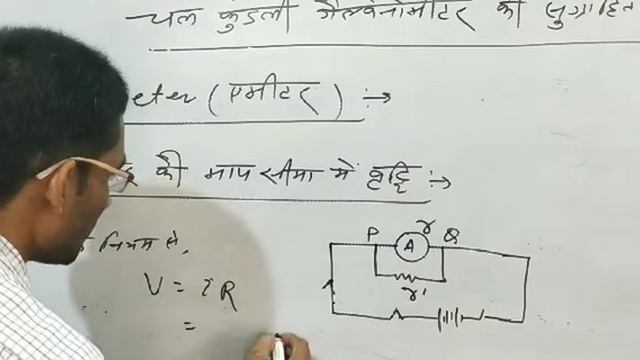 चल कुंडली गैल्वेनोमीटर की सुग्राहित
eter (एमीटर) :→
की माप सीमा में वृद्धि :→
नियम से,
V = iR
=
P r Q
A
r'